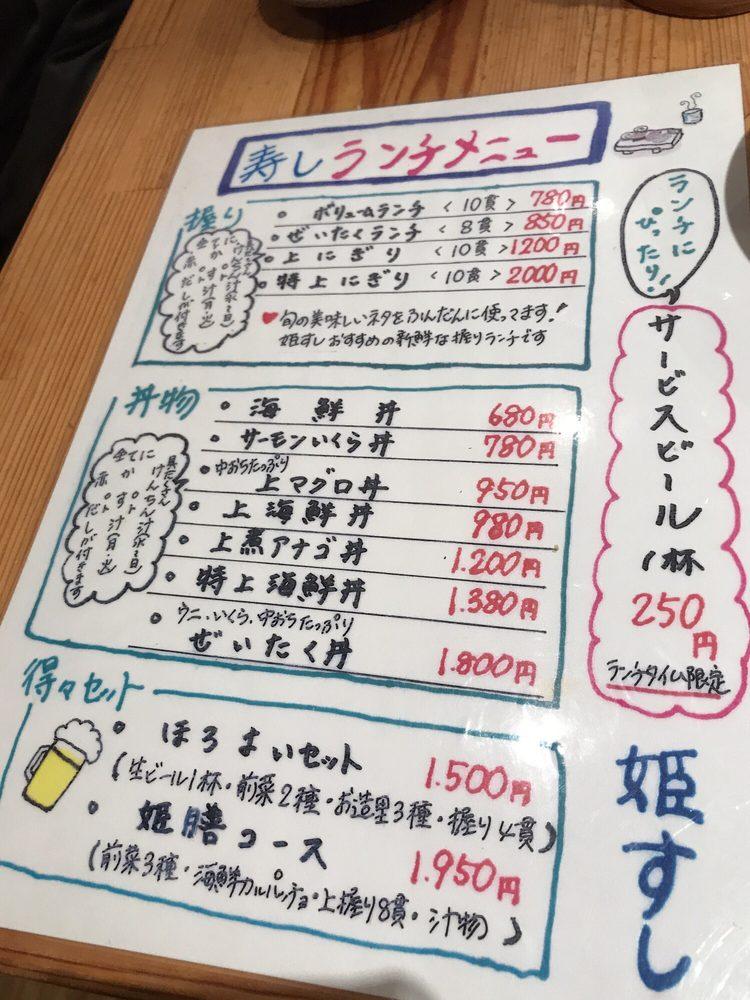 寿し ランチメニュー
握り
・ボリュームランチ <10貫> 780円
・ぜいたくランチ <8貫> 850円
・上にぎり <10貫> 1200円
・特上にぎり <10貫> 2000円
♥旬の美味しいネタをふんだんに使ってます!
姫すしおすすめの新鮮な握りランチです
丼物
・海鮮丼 680円
・サーモンいくら丼 780円
・中おちたっぷり
上マグロ丼 950円
・上海鮮丼 980円
・上煮アナゴ丼 1.200円
・特上海鮮丼 1.380円
・ウニ・いくら・中おちたっぷり
ぜいたく丼 1.800円
具だくさん
けんちん汁
かす汁
赤だしが付きます
得々セット
・ほろよいセット 1.500円
(生ビール1杯・前菜2種・お造里3種・握り4貫)
・姫膳コース 1.950円
(前菜3種・海鮮カルパッチョ・上握り8貫・汁物)
ランチに
ぴったり!
サービスビール
1杯
250円
ランチタイム限定
姫すし